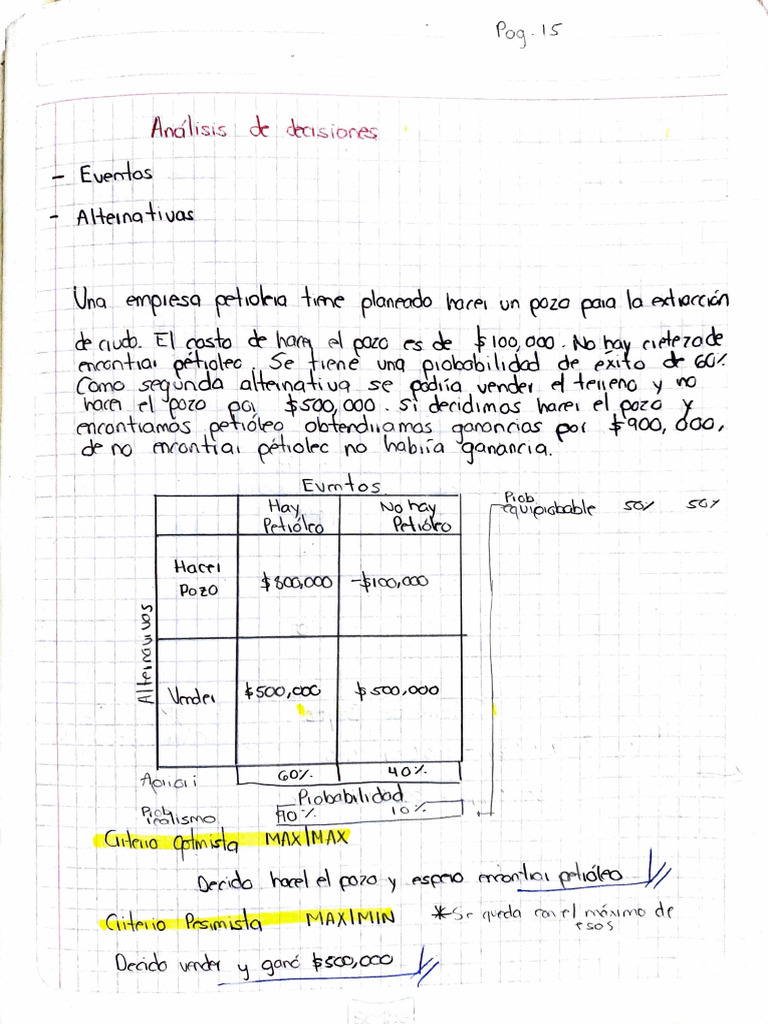 Pag. 15
Análisis de decisiones
- Eventos
- Alternativas
Una empresa petrolera tiene planeado hacer un pozo para la extracción
de crudo. El costo de hacer el pozo es de $100,000. No hay certeza de
encontrar pétroleo. Se tiene una probabilidad de éxito de 60%
Como segunda alternativa se podría vender el terreno y no
hacer el pozo por $500,000. Si decidimos hacer el pozo y
encontramos petróleo obtendríamos ganancias por $900,000,
de no encontrar pétroleo no habría ganancia.
Eventos
Hay Petróleo No hay Petróleo
Prob equiprobable 50% 50%
Alternativas
Hacer Pozo $800,000 -$100,000
Vender $500,000 $500,000
Apriori 60% 40%
Probabilidad
Prob realismo 90% 10%
Criterio Optmista MAX|MAX
Decido hacer el pozo y espero encontrar petróleo
Criterio Pesimista MAX|MIN *Se queda con el máximo de esos
Decido vender y gano $500,000